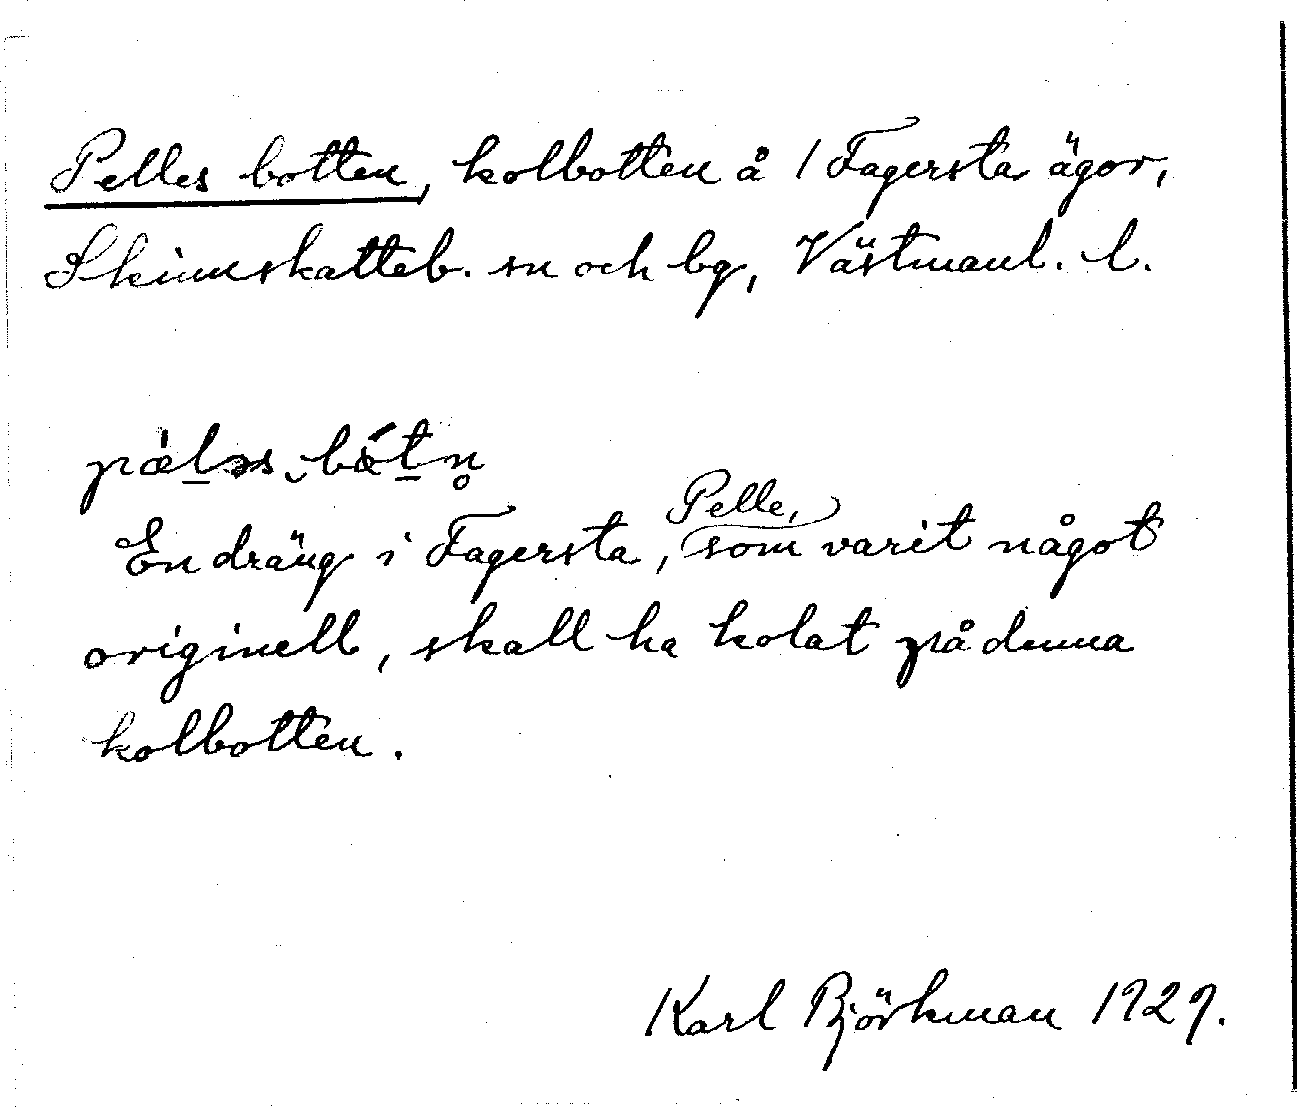 Pelles botten, kolbotten å / Fagersta ägor,
Skinnskatteb. sn och bg, Västmanl. l.
En dräng i Fagersta, Pelle, som varit något
originell, skall ha kolat på denna
kolbotten.
Karl Björkman 1929.